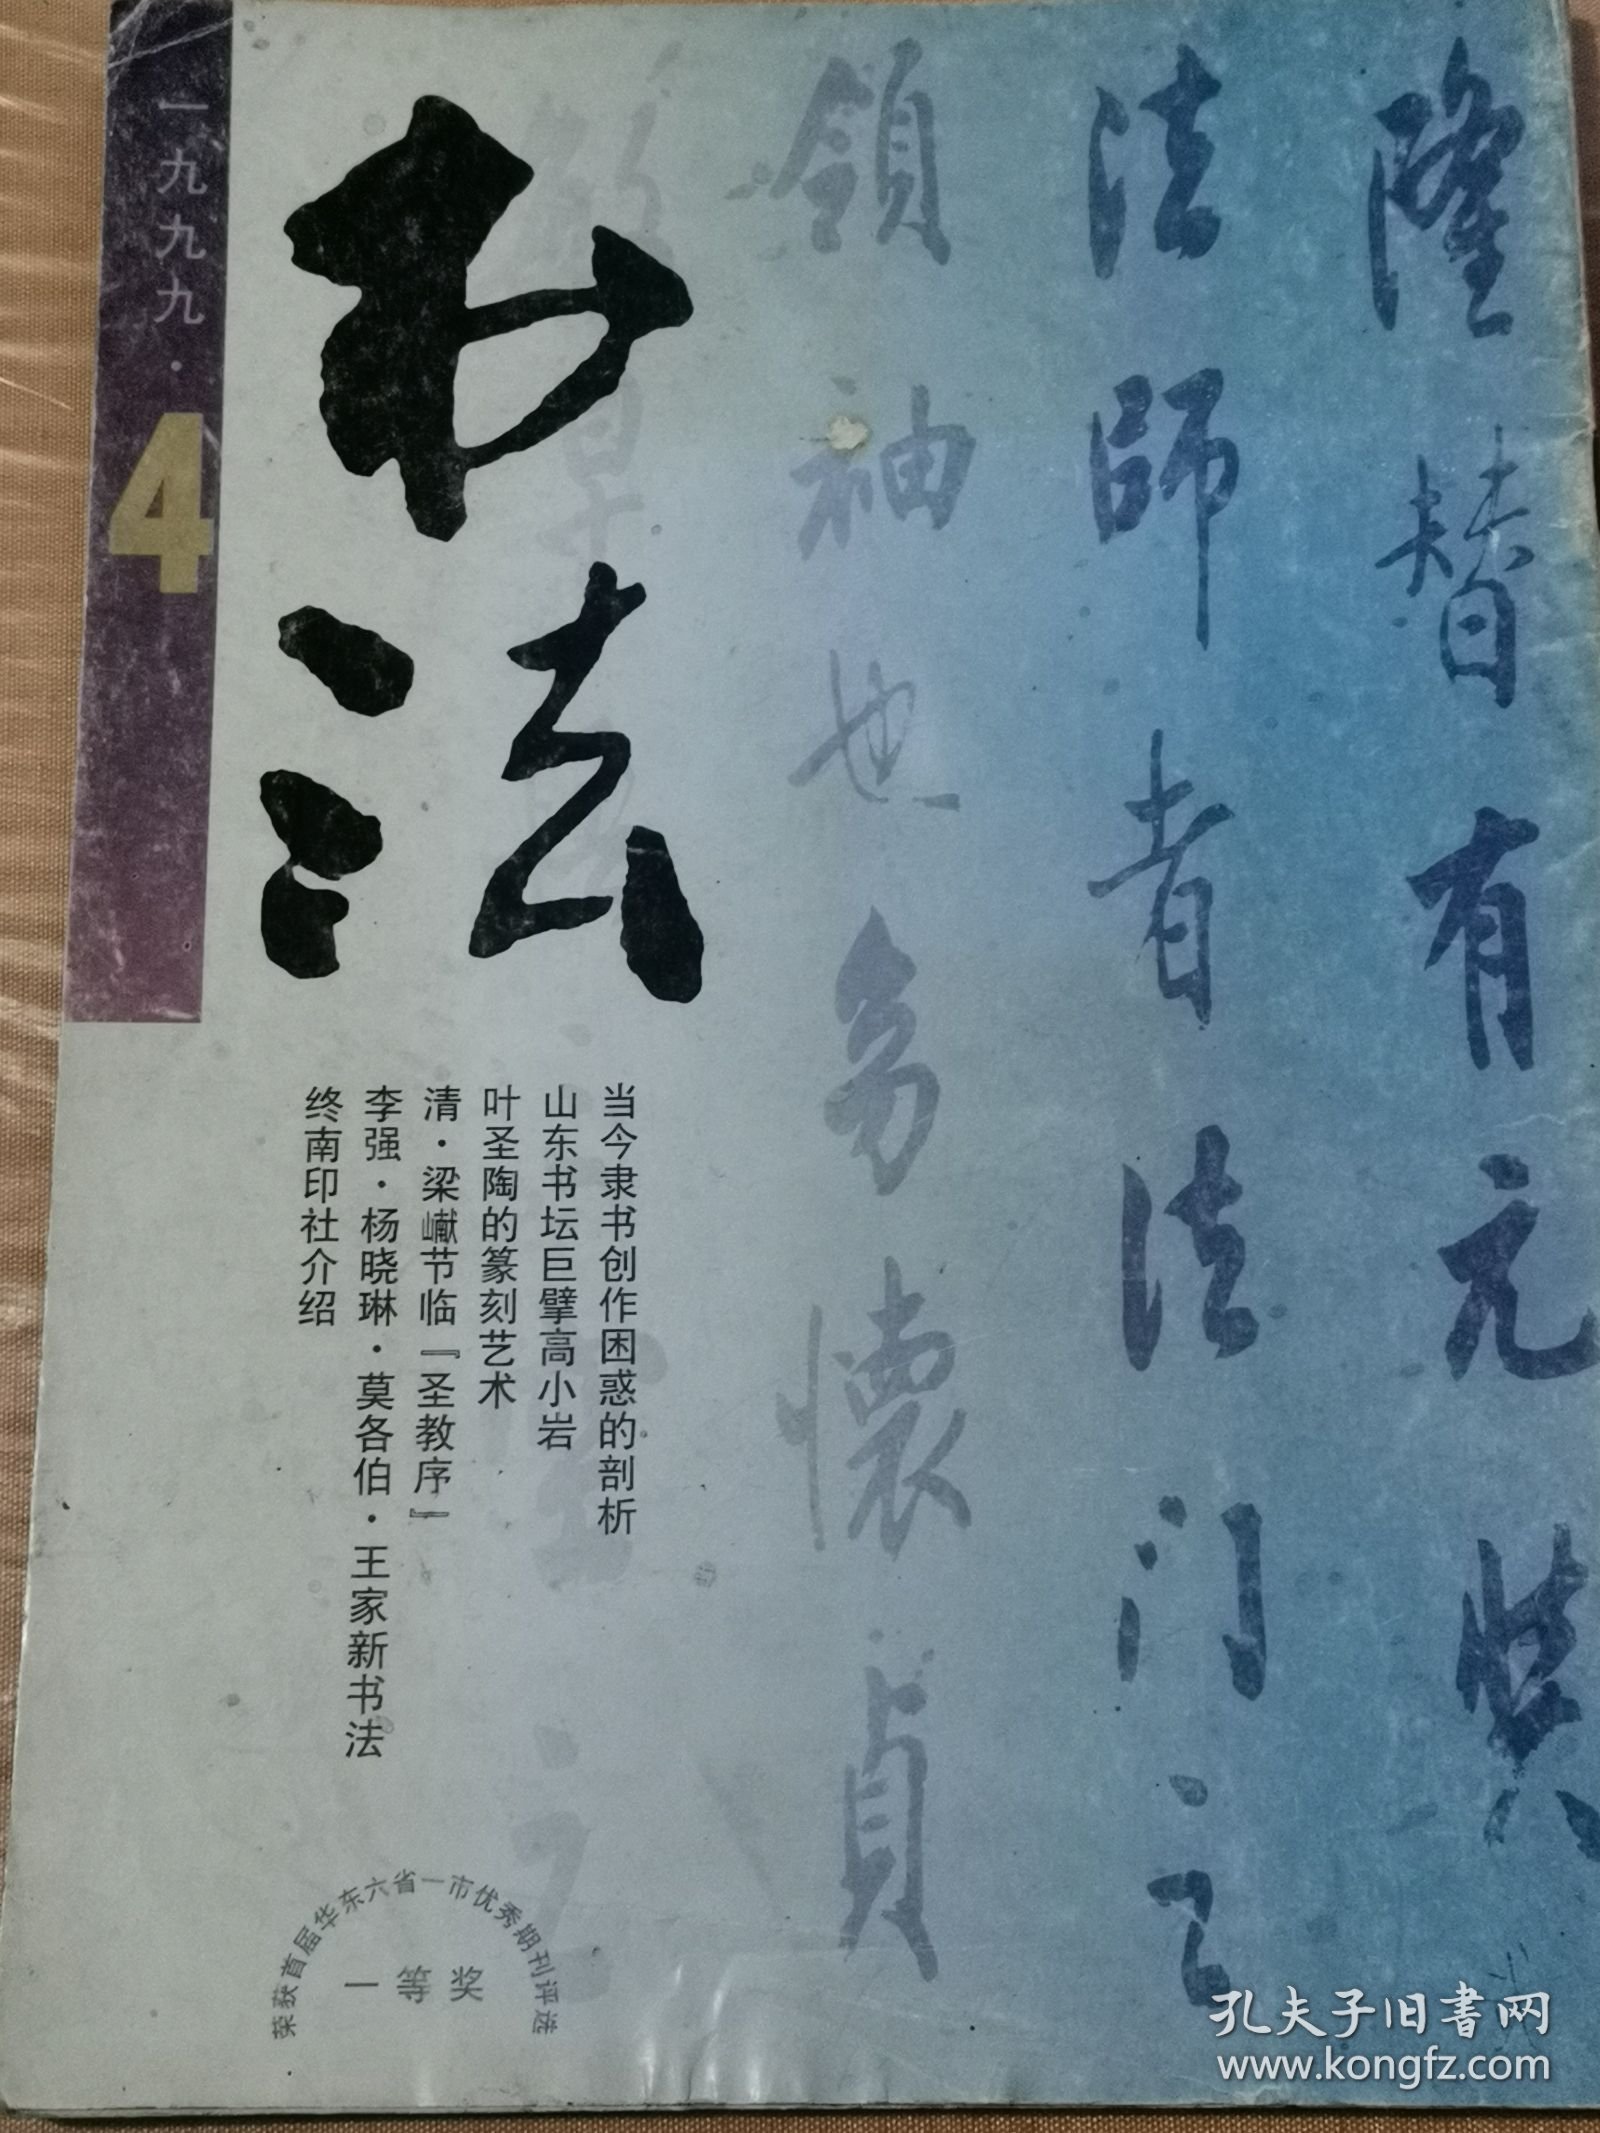 一九九九·
4
书法
当今隶书创作困惑的剖析
山东书坛巨擘高小岩
叶圣陶的篆刻艺术
清·梁巘节临『圣教序』
李强·杨晓琳·莫各伯·王家新书法
终南印社介绍
隆替有元奘
法師者法门之
領袖也幼懷貞
荣获首届华东六省一市优秀期刊评选
一等奖
孔夫子旧書网
www.kongfz.com